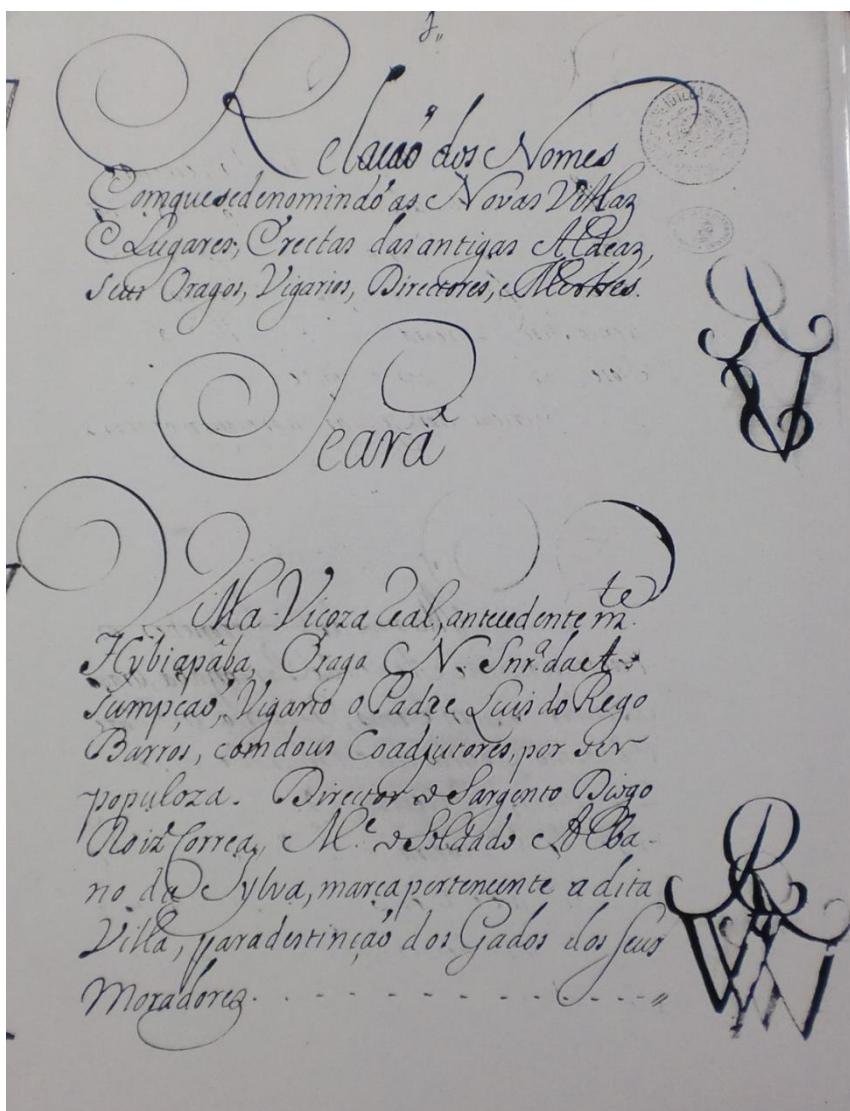 1,,
Relaçaõ dos Nomes
Comquesedenominaõ as Novas Villaz
E Lugares, Erectas das antigas Aldeaz,
seus Oragos, Vigarios, Directores, e Mestres.
Seará
Villa Viçoza Real, antecedente m.te
Hybiapába, Orago N. Snr.ª da As-
sumpçaõ, Vigario o Padre Luis do Rego
Barros, com dous Coadjutores, por ser
populoza. Director o Sargento Diogo
Roiz Correa, M.e o Soldado Alba-
no da Sylva, marca pertencente a dita
Villa, para destinçaõ dos Gados dos seus
Moradorez